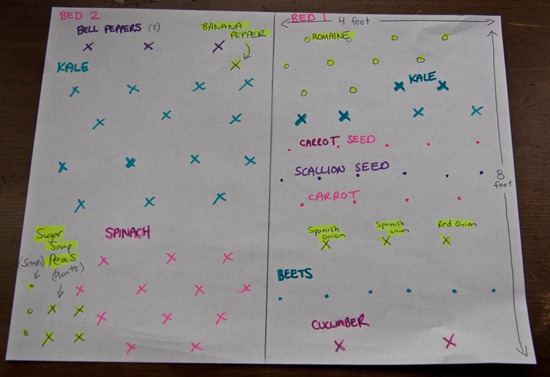 BED 2
BELL PEPPERS (3)
BANANA
PEPPER
KALE
Sugar
Snap
Peas
(seeds)
(plants)
SPINACH
BED 1
4 feet
ROMAINE
KALE
CARROT SEED
SCALLION SEED
CARROT
8
feet
Spanish
onion
Spanish
onion
Red Onion
BEETS
CUCUMBER